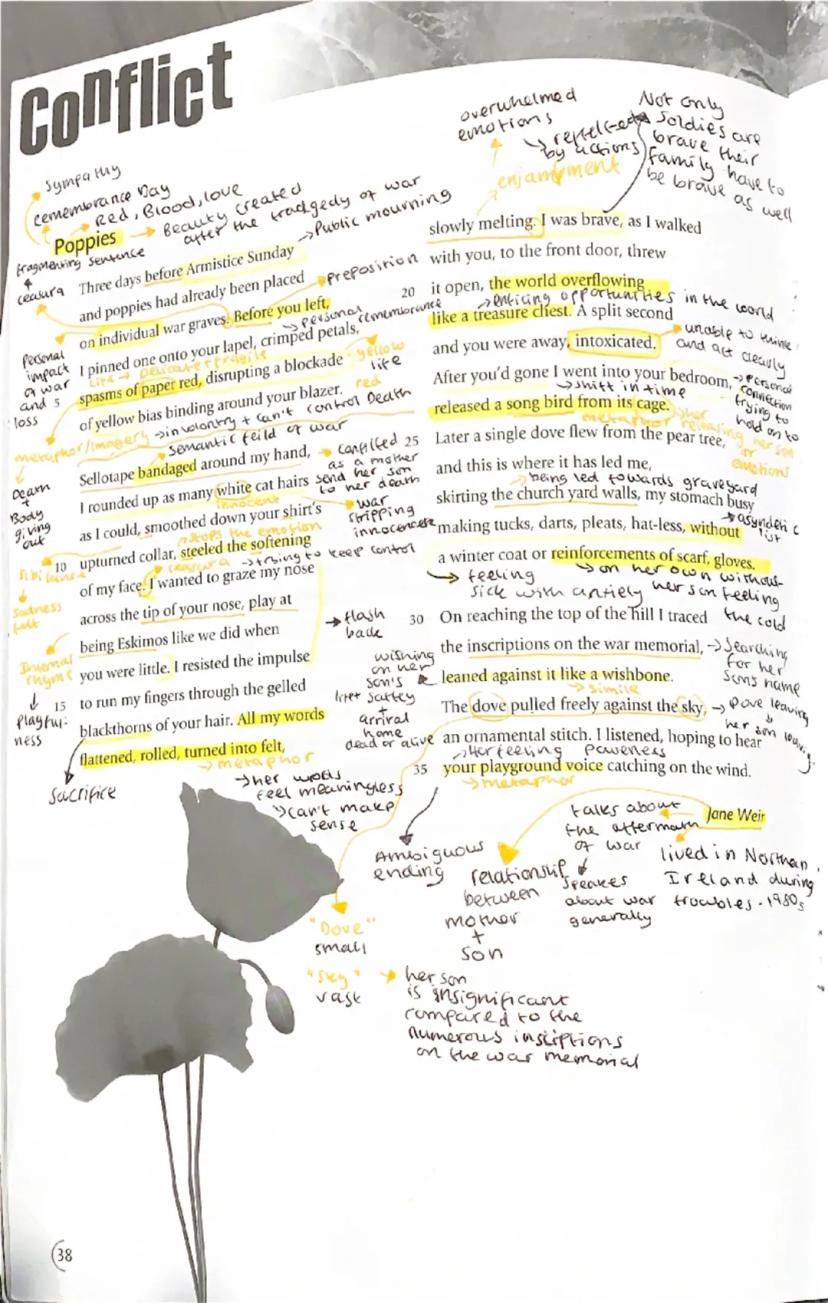 Conflict
sympathy
remembrance Day
Red, Blood, love
Poppies
Beauty created
after the tradgedy of war
Public mourning
fragmenting sentence
ceasura
Three days before Armistice Sunday
and poppies had already been placed
preposition
on individual war graves. Before you left,
personal remembrance
I pinned one onto your lapel, crimped petals,
Personal
impact
of war
and
loss
Life → Delicate + fragile
yellow
life
5
spasms of paper red, disrupting a blockade
red
Death
of yellow bias binding around your blazer.
metaphor/imagery
involontry + can't control
semantic feild of war
Death
+
Body
giving
out
Sellotape bandaged around my hand,
conflited
as a mother
send her son
to her death
I rounded up as many white cat hairs
innocent
war
stripping
innocence
as I could, smoothed down your shirt's
stops the emotion
10
upturned collar, steeled the softening
ceasura
trying to keep control
sibilance
sadness
felt
of my face. I wanted to graze my nose
across the tip of your nose, play at
flash
back
being Eskimos like we did when
Internal
rhyme
playful-
ness
you were little. I resisted the impulse
15
to run my fingers through the gelled
blackthorns of your hair. All my words
flattened, rolled, turned into felt,
metaphor
her words
feel meaningless
can't make
sense
sacrifice
overwhelmed
emotions
reflected
by actions
enjambment
Not only
soldies are
brave their
family have to
be brave as well
slowly melting. I was brave, as I walked
with you, to the front door, threw
20
it open, the world overflowing
enticing opportunities in the world
like a treasure chest. A split second
unable to think
and act clearly
and you were away, intoxicated.
After you'd gone I went into your bedroom,
shift in time
personal
connection
trying to
hold on to
released a song bird from its cage.
metaphor
her
releasing her son
or
emotions
Later a single dove flew from the pear tree,
25
and this is where it has led me,
being led towards graveyard
skirting the church yard walls, my stomach busy
asyndetic
list
making tucks, darts, pleats, hat-less, without
a winter coat or reinforcements of scarf, gloves.
feeling
sick with anxiety
on her own without
her son feeling
the cold
30
On reaching the top of the hill I traced
the inscriptions on the war memorial,
searching
for her
sons name
wishing
on her
son's
saftey
+
arrival
home
dead or alive
leaned against it like a wishbone.
simile
The dove pulled freely against the sky,
Dove leaving
her son leaving
an ornamental stitch. I listened, hoping to hear
Her feeling powerless
35
your playground voice catching on the wind.
metaphor
Ambiguous
ending
Jane Weir
talks about
the aftermath
of war
speakes
about war
generally
lived in Northan
Ireland during
troubles - 1980s
relationship
between
mother
+
son
"Dove"
small
"Sky"
vast
her son
is insignificant
compared to the
numerous insciptions
on the war memorial
38